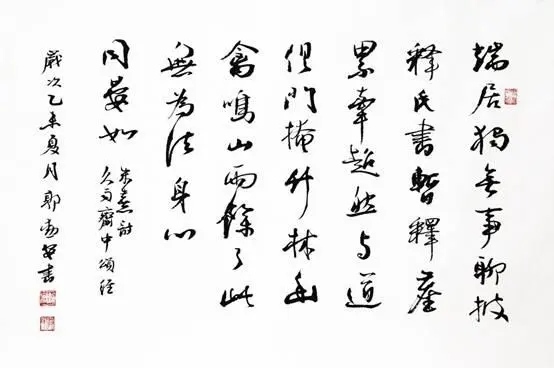 端居独無事聊披
釋氏書暫釋塵
累牽超然与道
俱門掩竹林幽
禽鳴山雨餘了此
無為法身心
同晏如
朱熹詩
久雨齋中頌經
歲次乙未夏月郭書